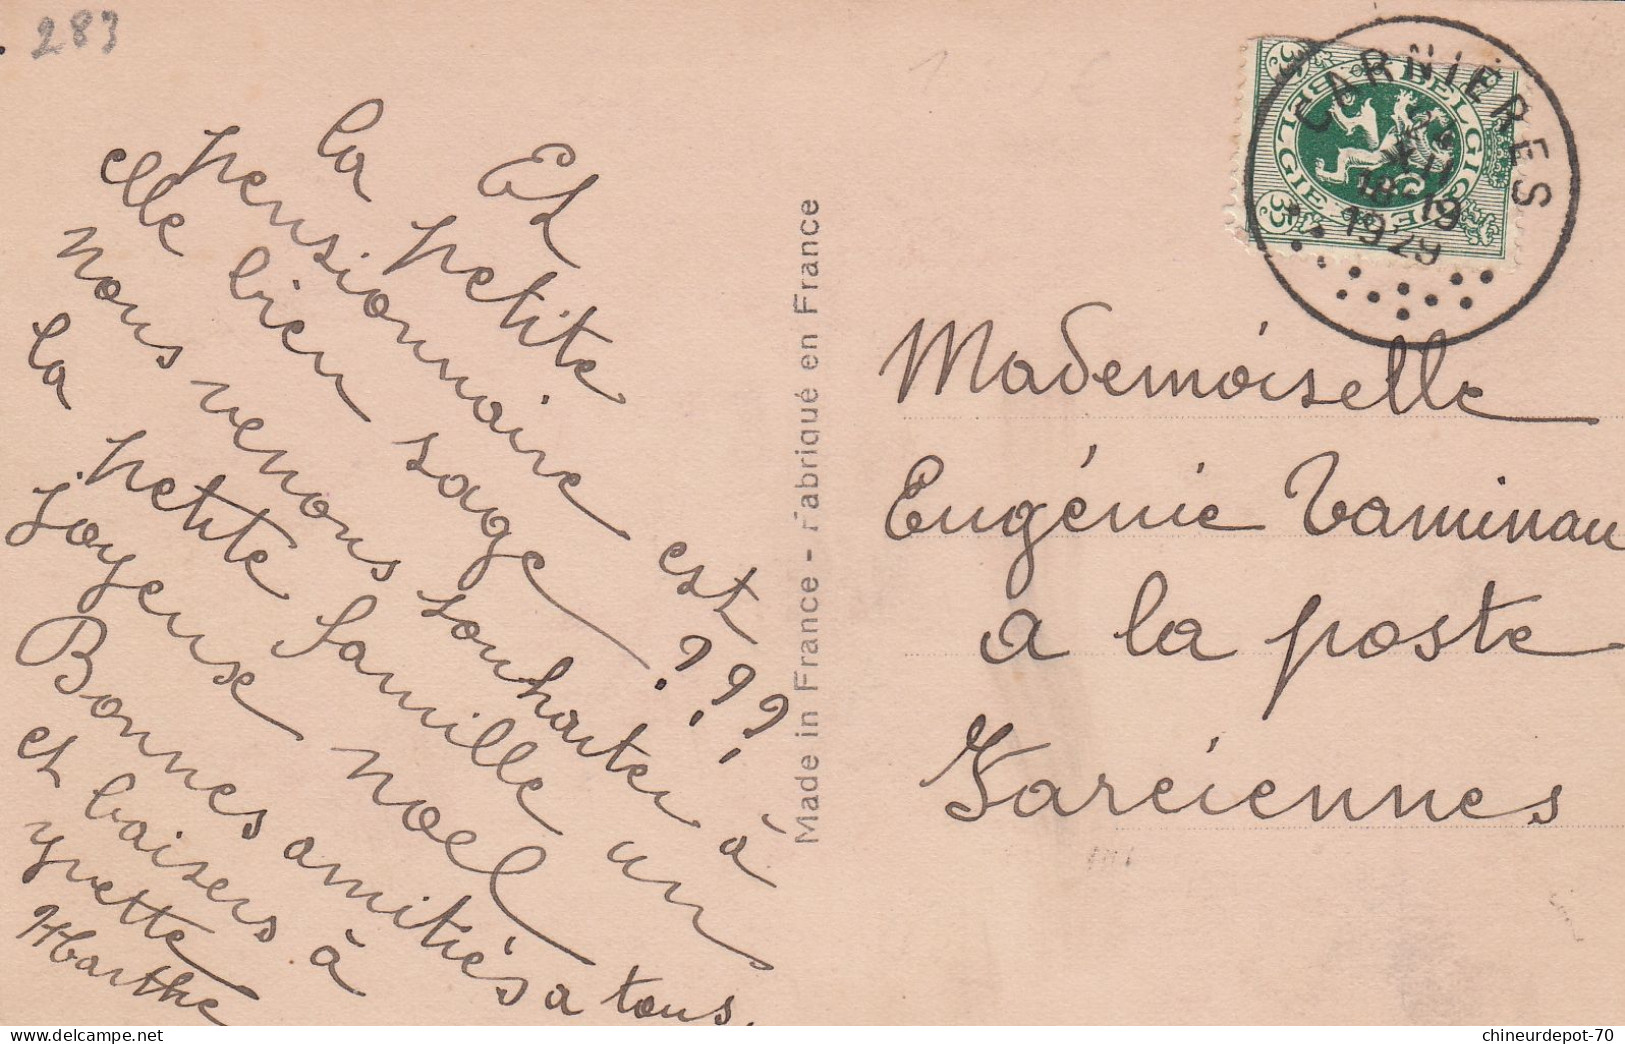 283
Et
la petite
pensionnaire est
elle bien sage ???
nous venons souhaiter à
la petite famille un
Joyeuse noel
Bonnes amitiés a tous.
et baisers à
yvette
Marthe
Made in France - Fabriqué en France
BELGIQUE
BELGIE
35c
35c
CARNIERES
XII
18-19
1929
Mademoiselle
Eugénie Taminau
a la poste
Farciennes
chineurdepot-70